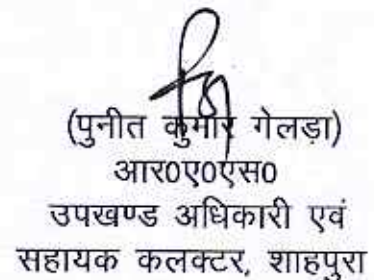 (पुनीत कुमार गेलड़ा)
आर0ए0एस0
उपखण्ड अधिकारी एवं
सहायक कलक्टर, शाहपुरा